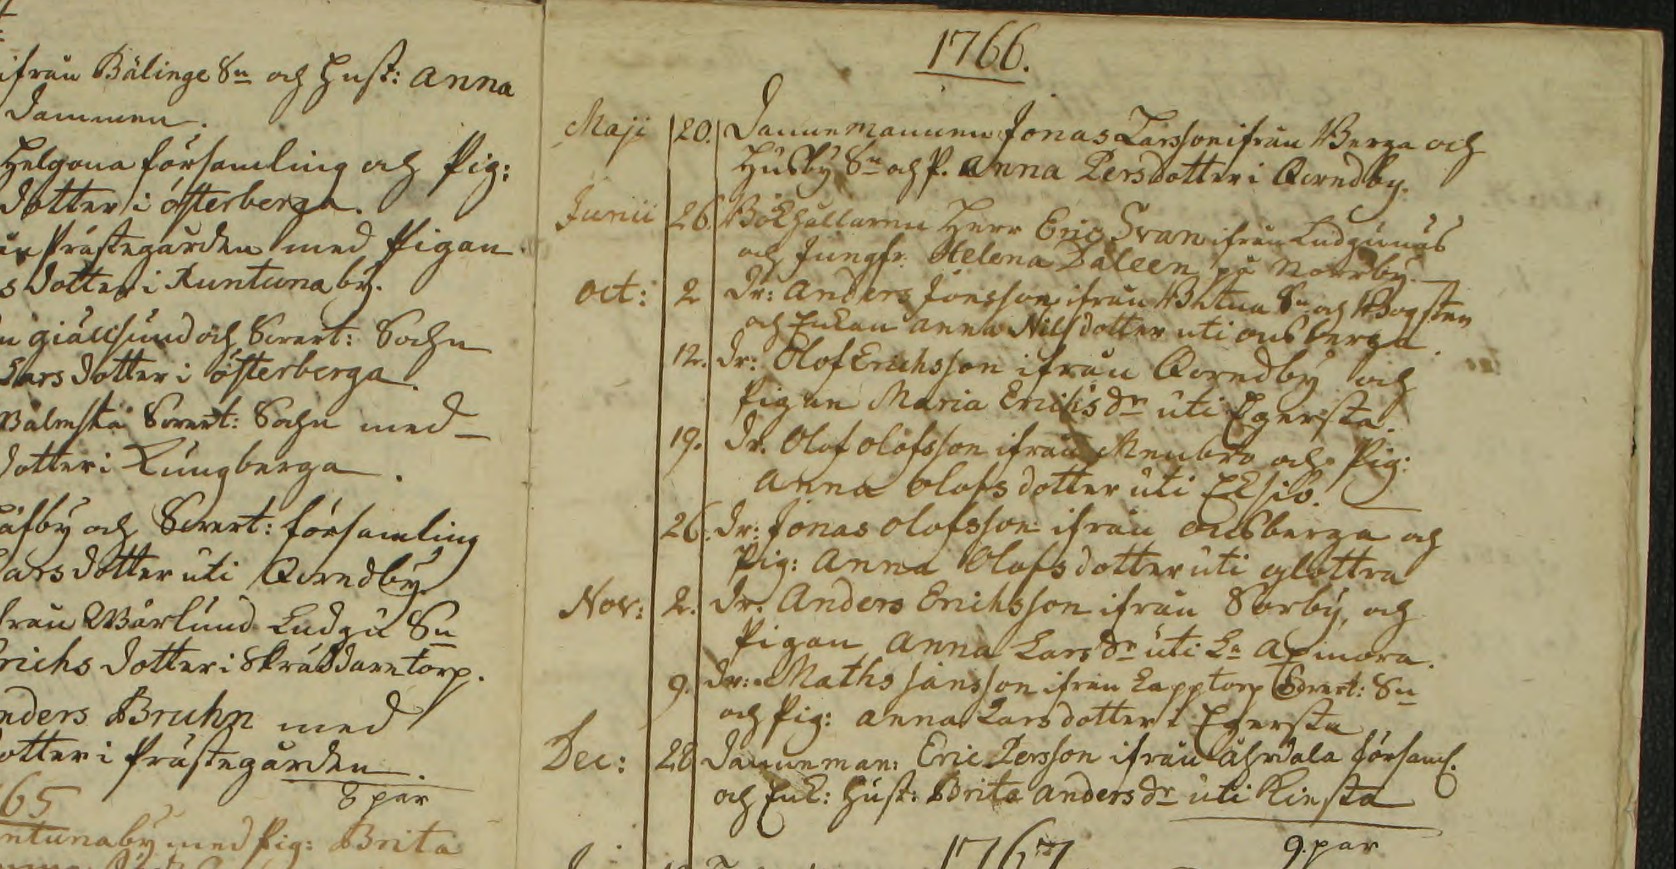 ifrån Bälinge Sn och Hust: Anna
Dammen.
Helgona församling och Pig:
dotter i österberga.
Prästegården med Pigan
s dotter i Runtuna by.
giällsund och Svert: Sochn
Lars dotter i österberga.
Svert: Sochn med
dotter i Lungberga.
och Svert: församling
Lars dotter uti Qvredby.
från Wårlund Ludgu Sn
Erichs dotter i Skräddaretorp.
Anders Bruhn med
dotter i Prästegården.
8 par
65
Runtuna by med Pig: Brita
1766.
Maji 20. Dannemannen Jonas Larsson ifrån Berga och
Husby Sn och P. Anna Persdotter i Qvredby.
Junii 26. Bokhållaren Herr Eric Svan ifrån Ludgunäs
och Jungfr. Helena Daleen på Norrby.
Oct: 2 Dr: Anders Jönsson ifrån Sn och Bogsten
och Enkan Anna Nilsdotter uti onsberga.
12. Dr: Olof Erichsson ifrån Qvredby och
Pigan Maria Erichs dr uti Egersta.
19. Dr. Olof olofsson ifrån Menbro och Pig:
Anna olofs dotter uti
26. Dr: Jonas olofsson ifrån onsberga och
Pig: Anna Olofs dotter uti glottra
Nov: 2. Dr. Anders Erichsson ifrån Sorby, och
Pigan Anna Lars dr uti Ln Apmora.
9. Dr: Maths Jansson ifrån Lapptorp Svert: Sn
och Pig: Anna Lars dotter i Egersta
Dec: 28 Danneman: Eric Persson ifrån församl.
och Enk: Hust: Brita Anders dr uti Kinsta
9. par
1767